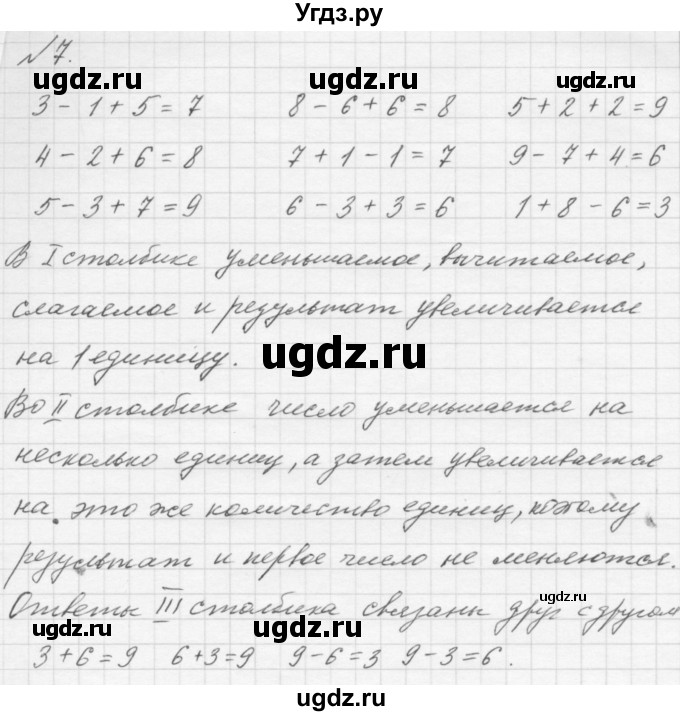 Угдз.ру
№ 7.
ugdz.ru ugdz.ru ugdz.ru
3 - 1 + 5 = 7 8 - 6 + 6 = 8 5 + 2 + 2 = 9
4 - 2 + 6 = 8 7 + 1 - 1 = 7 9 - 7 + 4 = 6
5 - 3 + 7 = 9 6 - 3 + 3 = 6 1 + 8 - 6 = 3
В I столбике уменьшаемое, вычитаемое,
слагаемое и результат увеличивается
на 1 единицу.
ugdz.ru
Во II столбике число уменьшается на
несколько единиц, а затем увеличивается
на это же количество единиц, поэтому
результат и первое число не меняются.
ugdz.ru
Ответы III столбика связаны друг с другом
ugdz.ru ugdz.ru
3 + 6 = 9 6 + 3 = 9 9 - 6 = 3 9 - 3 = 6.
ugdz.ru